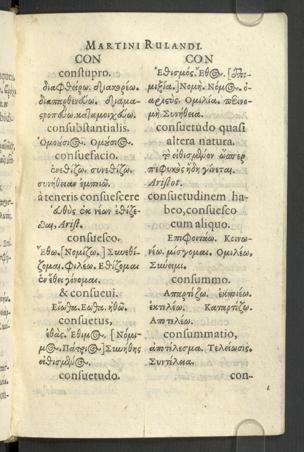 MARTINI RULANDI.
CON
constupro.
διαφθείρω. διακορέω.
διαπαρθενεύω.
consubstantialis.
Ὁμοούσι@. Ὁμούσι@.
consuefacio.
ἐθίζω. συνεθίζω.
συνήθειαν ἐμποιῶ.
à teneris consuescere
εὐθὺς ἐκ νέων ἐθίζε-
σθαι, Arist.
consuesco.
Ἔθω. [Νομίζω.] Συνεθί-
ζομαι. Φιλέω. Ἐθίζομαι
ἐν ἔθει γίνομαι.
& consueui.
Εἴωθα. Ἔωθα.
consuetus,
ἐθὰς. Ἔθιμ@. [Νόμι-
μ@. Πάτρι@.] Συνήθης
εἰθισμέν@.
consuetudo.
CON
Ἐθισμός. Ἔθ@.
Νομή. Νόμ@.
Ὁμιλία.
Συνήθεια.
consuetudo quasi
altera natura.
τὸ εἰθισμένον ὥσπερ
πεφυκὸς ἤδη γίνεται.
Aristot.
consuetudinem ha-
beo, consuesco
cum aliquo.
Ἐπιφοιτάω. Κοινω-
νέω. μίσγομαι. Ὁμιλέω.
Σύνειμι.
consummo.
Ἀπαρτίζω.
ἐκτελέω. Καταρτίζω.
Ἀποτελέω.
consummatio,
ἀποτέλεσμα. Τελείωσις.
Συντέλεια.
con-